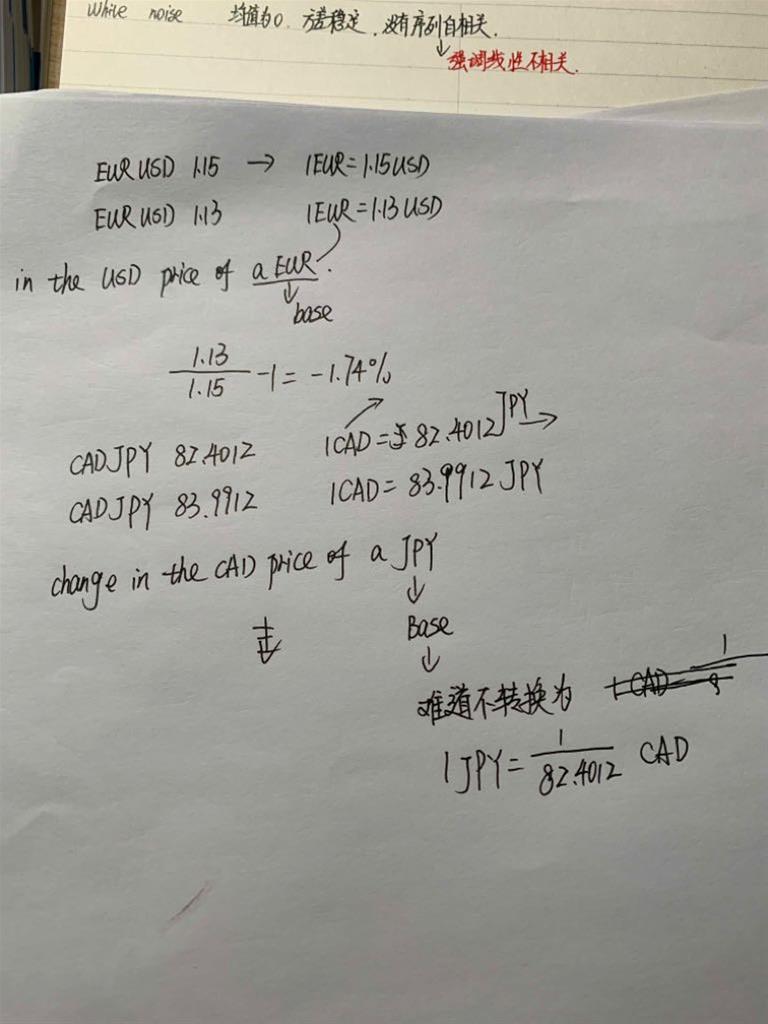 While noise 均值为0. 方差稳定. 没有序列自相关.
强调线性不相关.
EUR USD 1.15 → 1EUR=1.15USD
EUR USD 1.13 1EUR=1.13USD
in the USD price of a EUR.
base
1.13
1.15 -1= -1.74%
CADJPY 82.4012 1CAD= 82.4012 JPY →
CADJPY 83.9912 1CAD= 83.9912 JPY
change in the CAD price of a JPY
Base
难道不转换为
1
1JPY= 82.4012 CAD